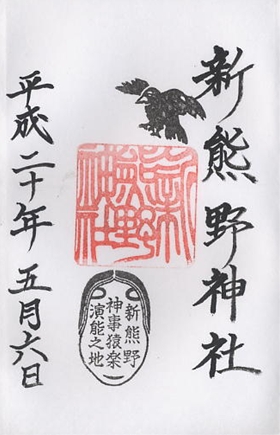 新熊野神社
新熊野神社
新熊野
神事猿楽
演能之地
平成二十年五月六日